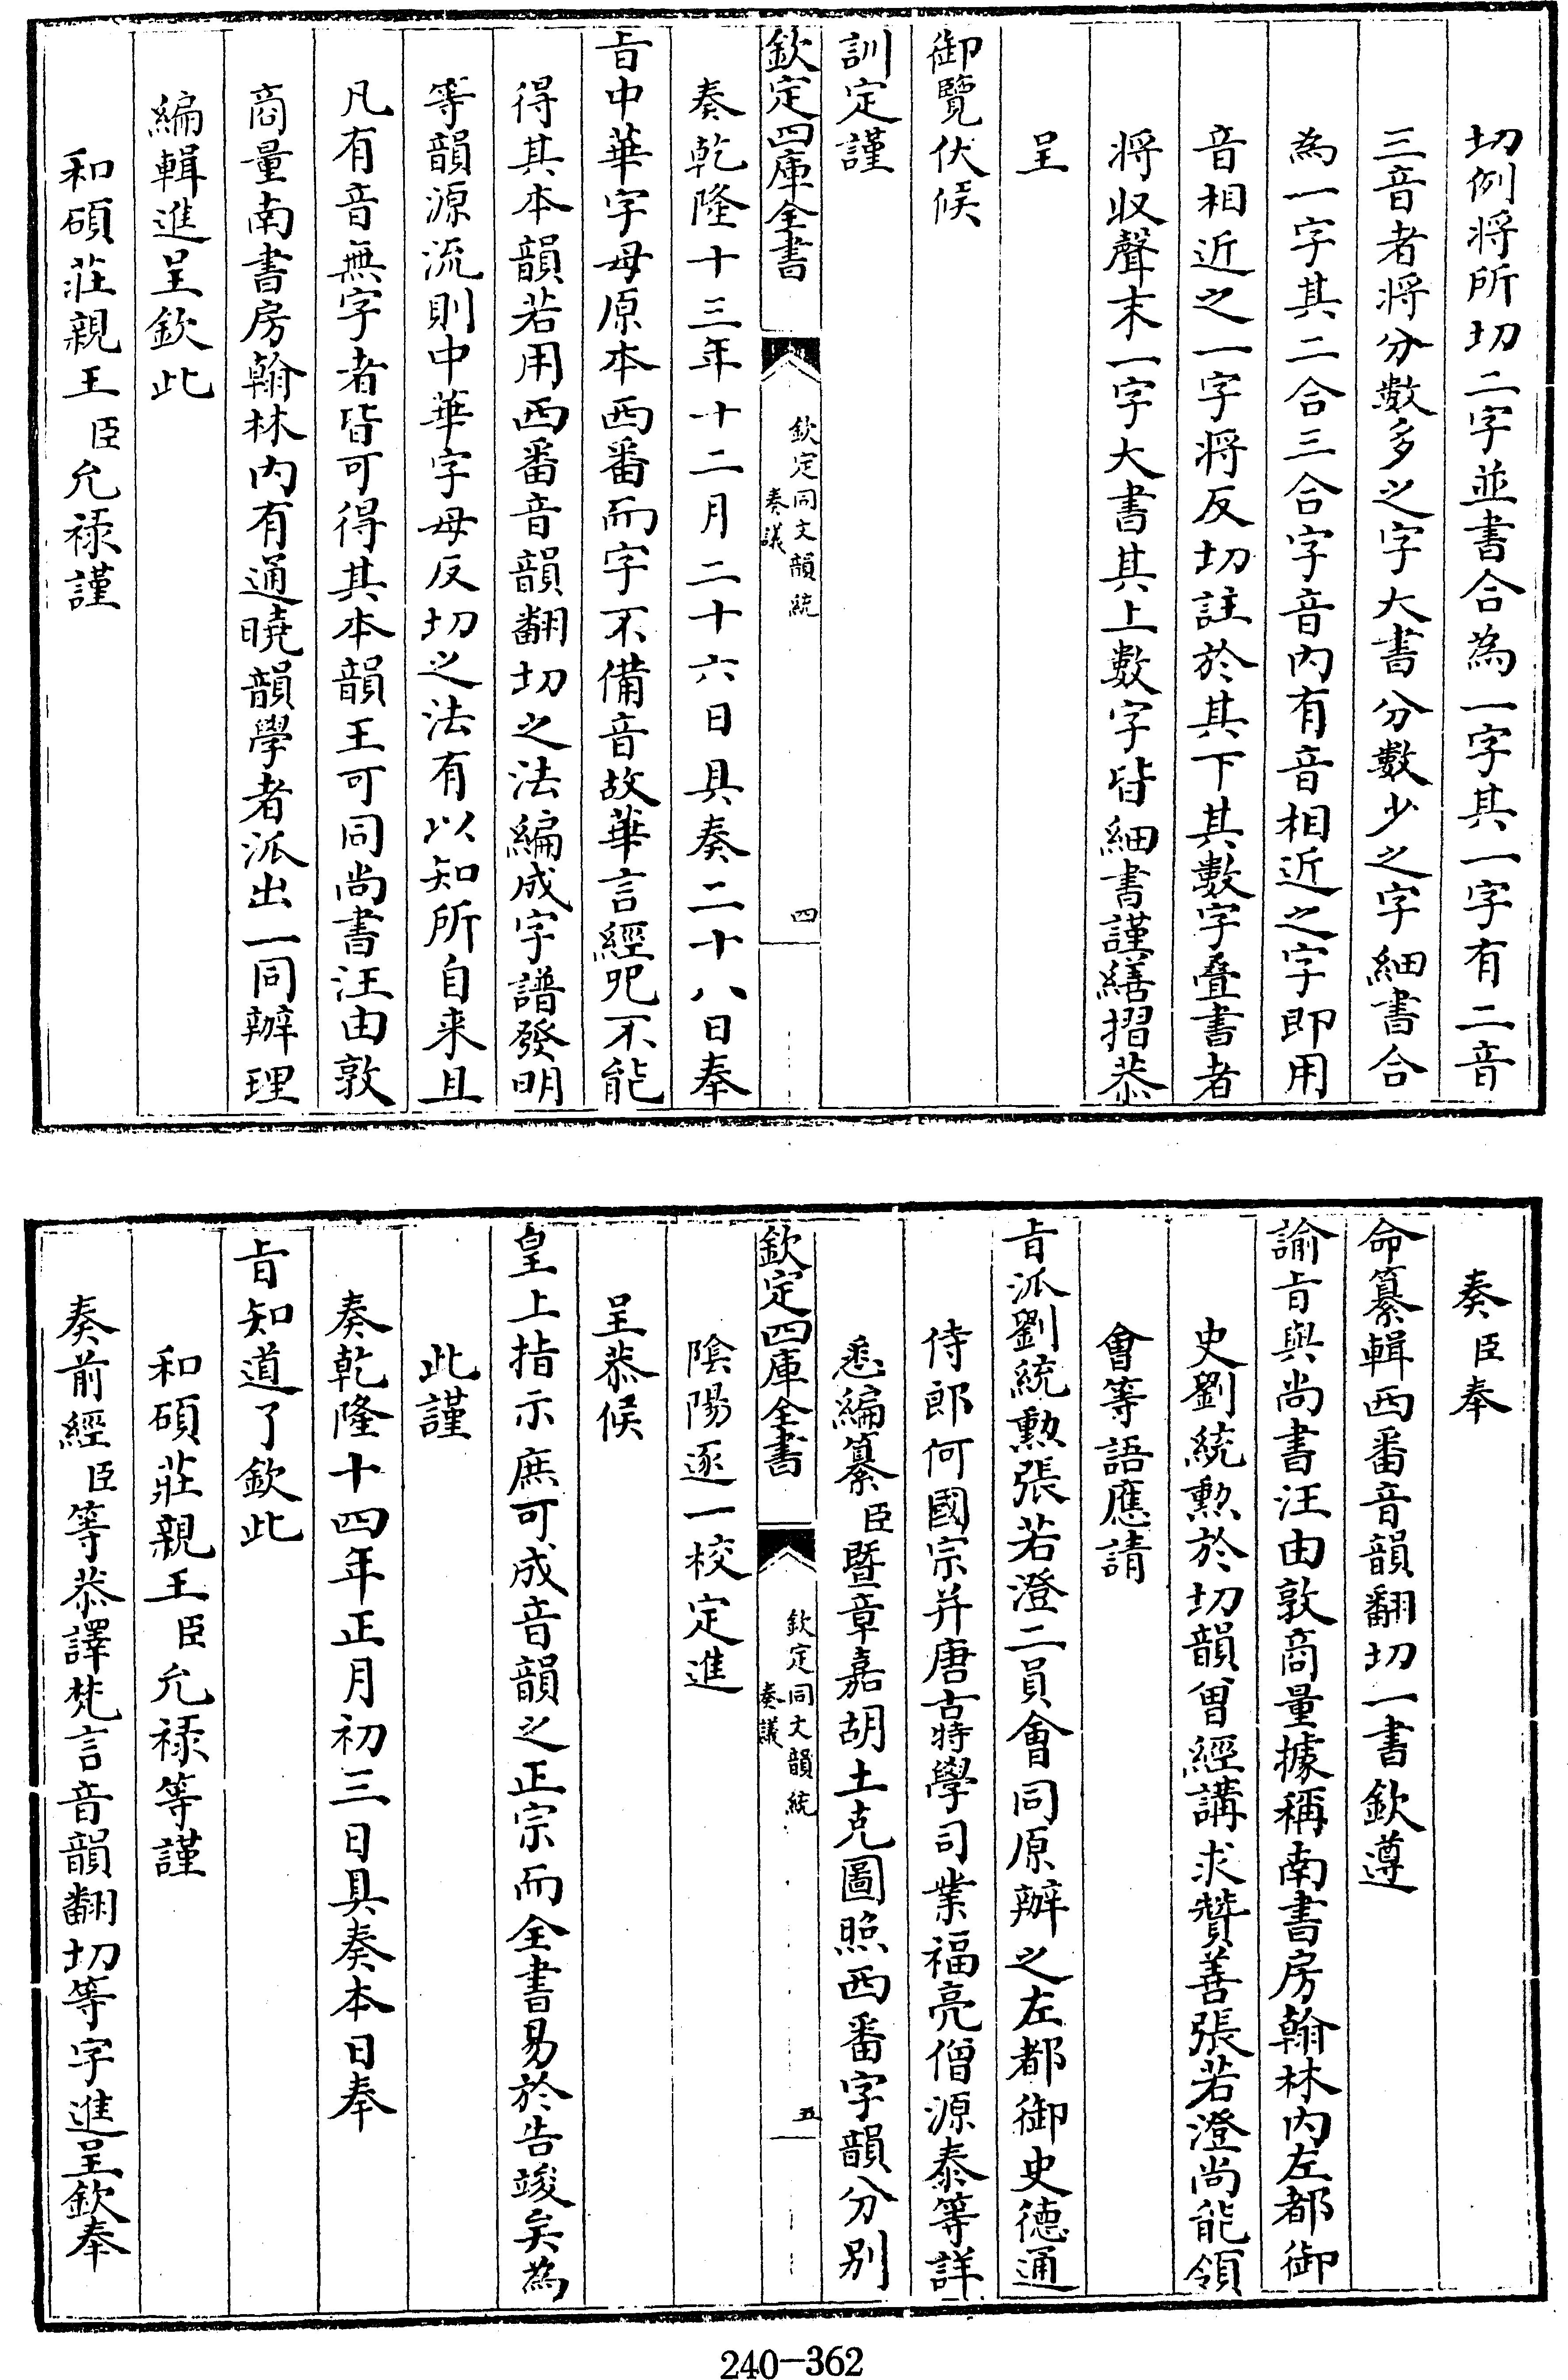 切例将所切二字並書合為一字其一字有二音
三音者将分數多之字大書分數少之字細書合
為一字其二合三合字音内有音相近之字即用
音相近之一字将反切註於其下其數字疊書者
将収聲末一字大書其上數字皆細書謹繕摺恭
呈
御覽伏候
訓定謹
欽定四庫全書
欽定同文韻統
奏議
四
奏乾隆十三年十二月二十六日具奏二十八日奉
㫖中華字母原本西番而字不備音故華言經呪不能
得其本韻若用西番音韻翻切之法編成字譜發明
等韻源流則中華字母反切之法有以知所自来且
凡有音無字者皆可得其本韻王可同尚書汪由敦
商量南書房翰林内有通曉韻學者派出一同辦理
編輯進呈欽此
和碩莊親王臣允祿謹
奏臣奉
命纂輯西番音韻翻切一書欽遵
諭㫖與尚書汪由敦商量據稱南書房翰林内左都御
史劉統勲於切韻曾經講求贊善張若澄尚能領
會等語應請
㫖派劉統勲張若澄二員會同原辦之左都御史德通
侍郎何國宗并唐古特學司業福亮僧源泰等詳
悉編纂臣暨章嘉胡土克圖照西番字韻分别
欽定四庫全書
欽定同文韻統
奏議
五
陰陽逐一校定進
呈恭候
皇上指示庶可成音韻之正宗而全書易於告竣矣為
此謹
奏乾隆十四年正月初三日具奏本日奉
㫖知道了欽此
和碩莊親王臣允祿等謹
奏前經臣等恭譯梵言音韻翻切等字進呈欽奉
240-362